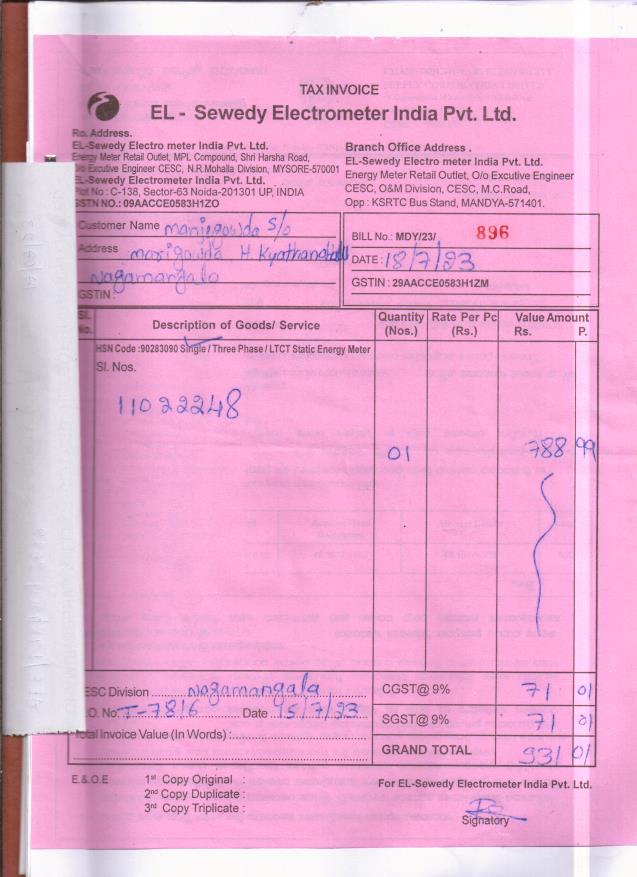 TAX INVOICE
EL - Sewedy Electrometer India Pvt. Ltd.
Ro. Address.
EL-Sewedy Electro meter India Pvt. Ltd.
Energy Meter Retail Outlet, MPL Compound, Shri Harsha Road,
O/o Excutive Engineer CESC, N.R.Mohalla Division, MYSORE-570001
EL-Sewedy Electrometer India Pvt. Ltd.
Plot No : C-138, Sector-63 Noida-201301 UP, INDIA
GSTN NO.: 09AACCE0583H1ZO
Branch Office Address .
EL-Sewedy Electro meter India Pvt. Ltd.
Energy Meter Retail Outlet, O/o Excutive Engineer
CESC, O&M Division, CESC, M.C.Road,
Opp : KSRTC Bus Stand, MANDYA-571401.
Customer Name manjegowda S/o
Address marigowda H
Nagamangala
GSTIN :
BILL No.: MDY/23/ 896
DATE : 18/7/23
GSTIN : 29AACCE0583H1ZM
Sl. No. Description of Goods/ Service Quantity (Nos.) Rate Per Pc (Rs.) Value Amount Rs. P.
HSN Code :90283090 Single / Three Phase / LTCT Static Energy Meter
Sl. Nos.
11022248
01 788 99
CESC Division Nagamangala
CGST@ 9% 71 01
.O. No. T-7816 Date 15/7/23
SGST@ 9% 71 01
Total Invoice Value (In Words) :
GRAND TOTAL 931 01
E.& O.E
1st Copy Original :
2nd Copy Duplicate :
3rd Copy Triplicate :
For EL-Sewedy Electrometer India Pvt. Ltd.
Signatory